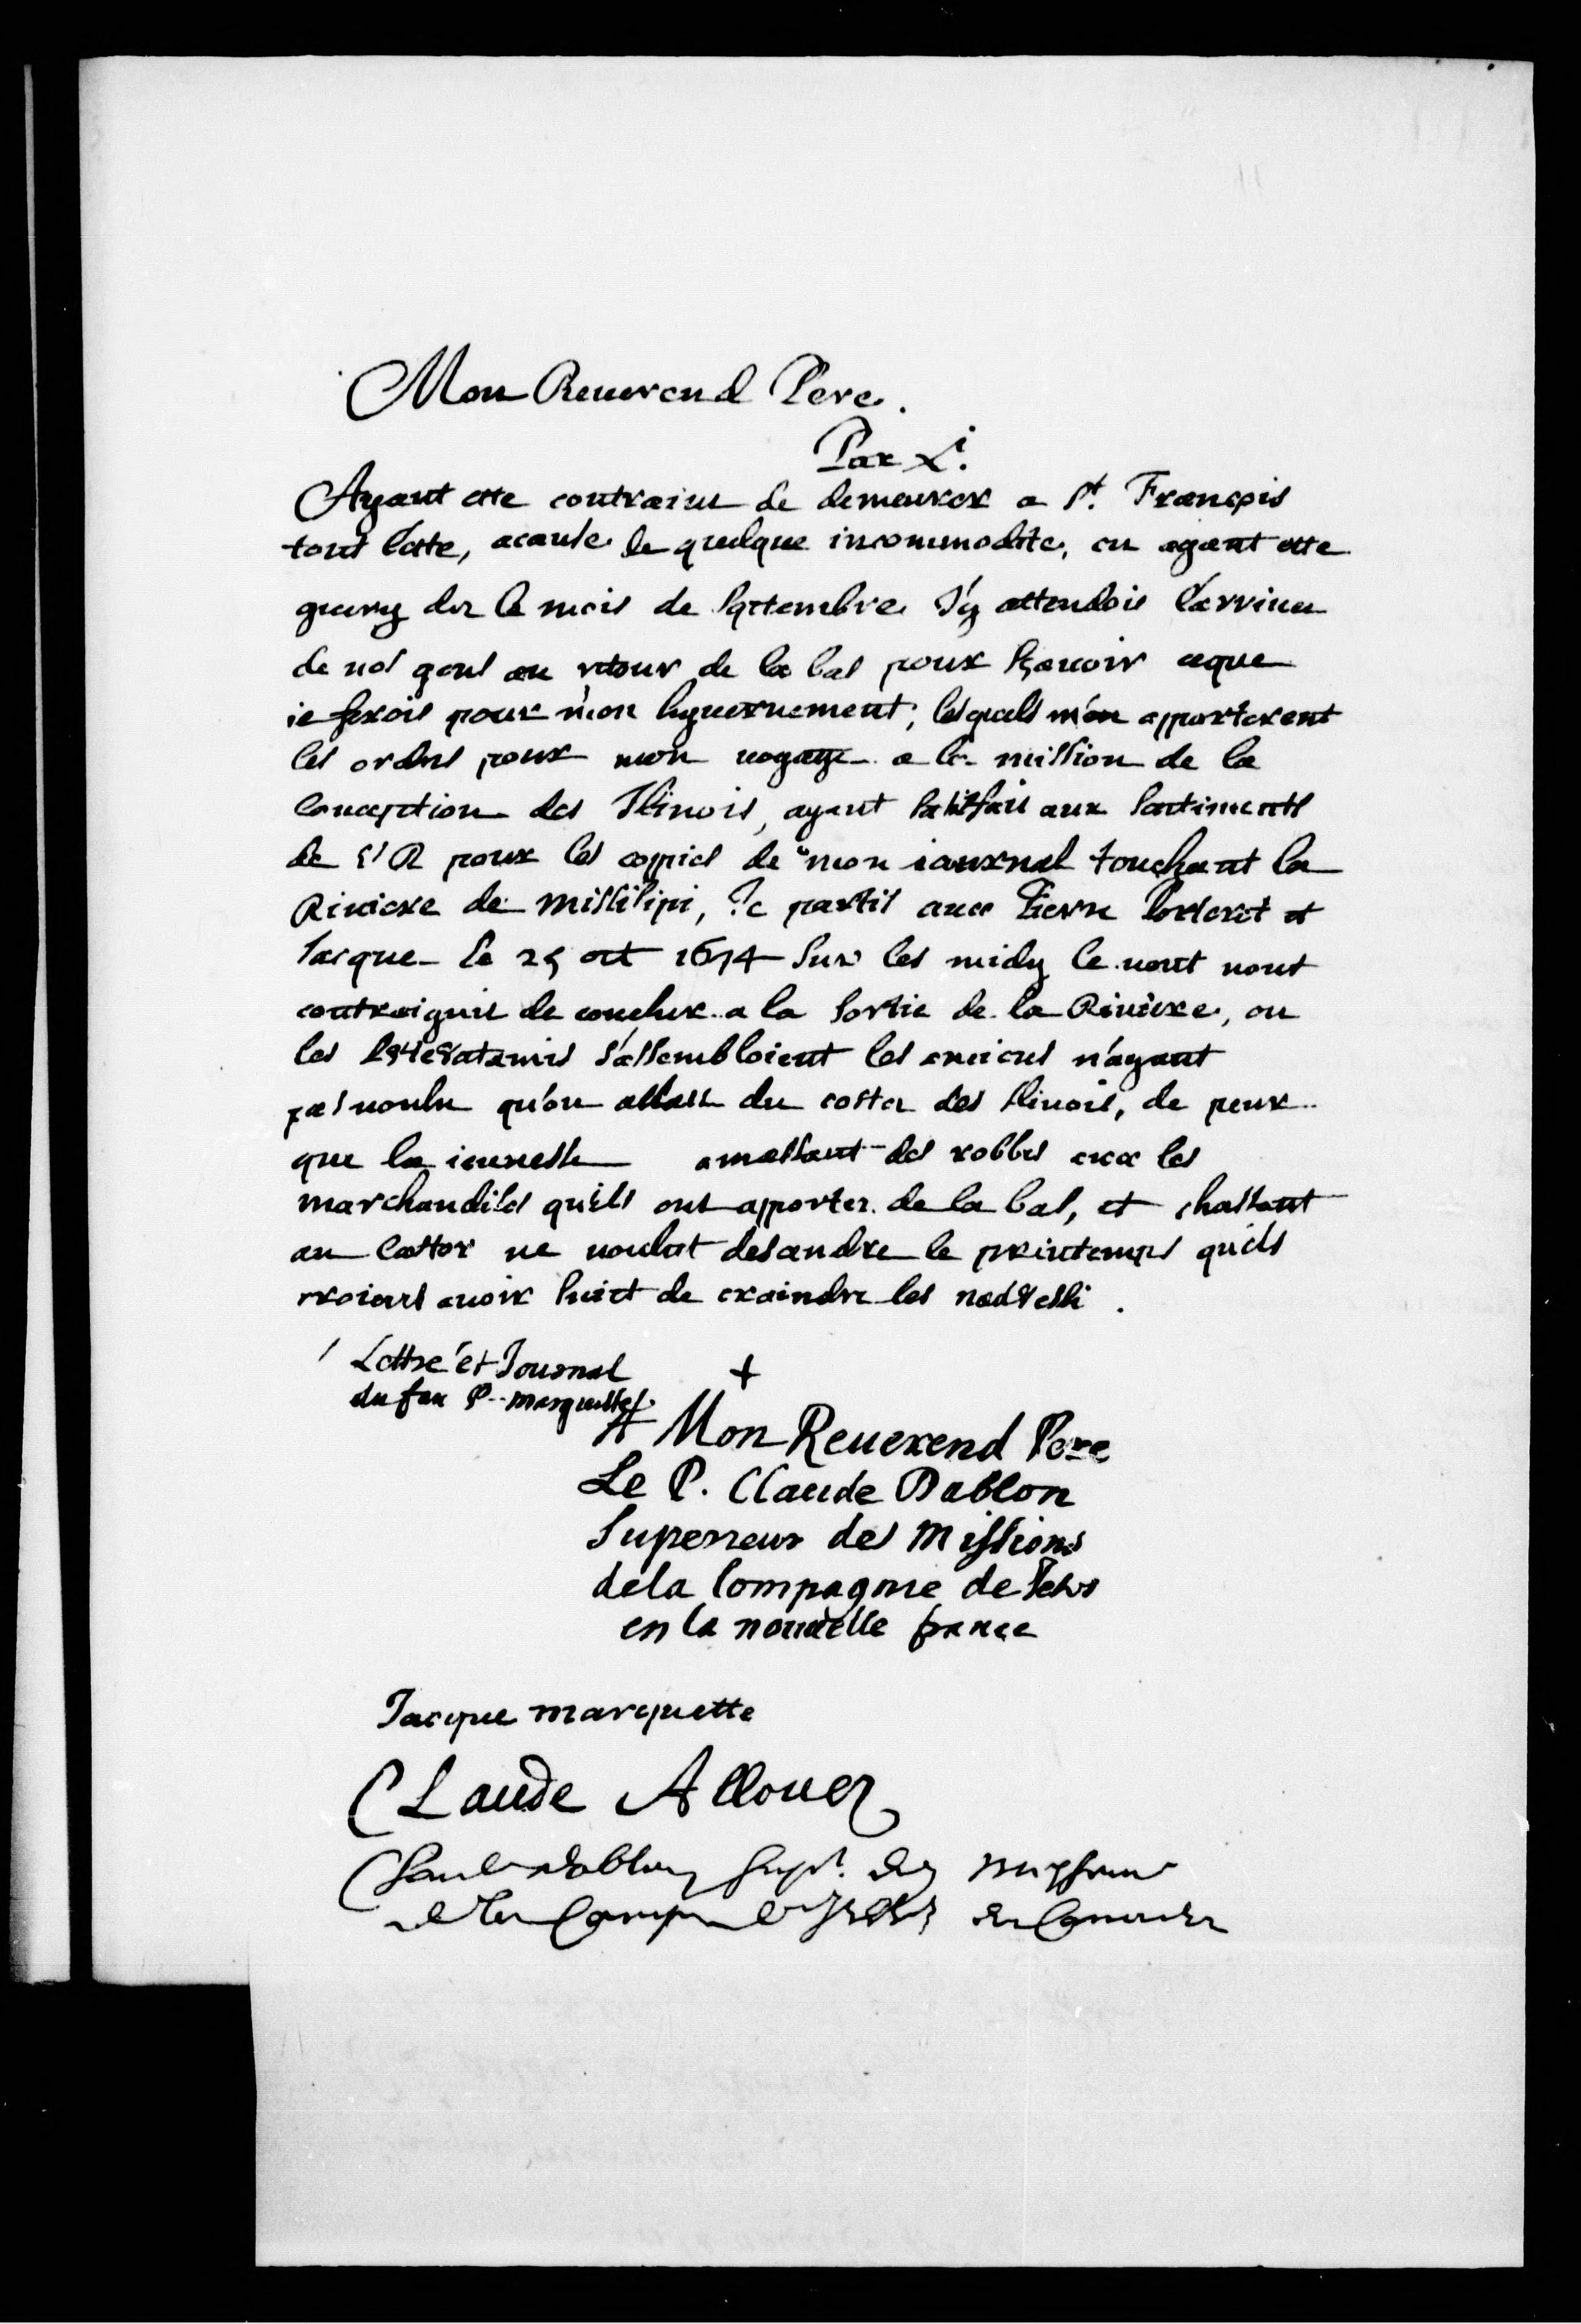 Mon Reuerend Pere.
Pax Xi.
Ayant este contraint de demeurer a st. François
tout l'este, acause de quelque incommodite, en ayant este
guery dez le mois de septembre J'y attendois l'arriuee
de nos gens au retour de la bas pour scauoir ceque
ie ferois pour mon hyuernement; lesquels m'en apporterent
les ordres pour mon uoyage a la mission de la
Conception des Ilinois, ayant satisfait aux sentiments
de V R pour les coppies de mon iournal touchant la
Riuiere de Missisipi, Ie partis auec Pierre Porteret et
Jacque le 25 oct 1674 sur les midy le uent nous
contraignit de coucher a la sortie de la Riuiere, ou
les P8te8atamis s'assembloient les anciens n'ayant
pas uoulu qu'on allast du costez des Ilinois, de peur
que la ieunesse amassant des robbes auec les
marchandises qu'ils ont apportez de la bas, et chassant
au Castor ne uoulut desandre le printemps qu'ils
croient auoir suiet de craindre les nad8essi.
Lettre et Journal
du feu P. marquette
+
A Mon Reuerend Pere
Le P. Claude Dablon
Superieur des Missions
dela Compagnie de Jesus
en la nouuelle france
Jacque marquette
CLaude Allouez
Claude Dablon Supr. des Missions
de la Comp de Jesus en Canada